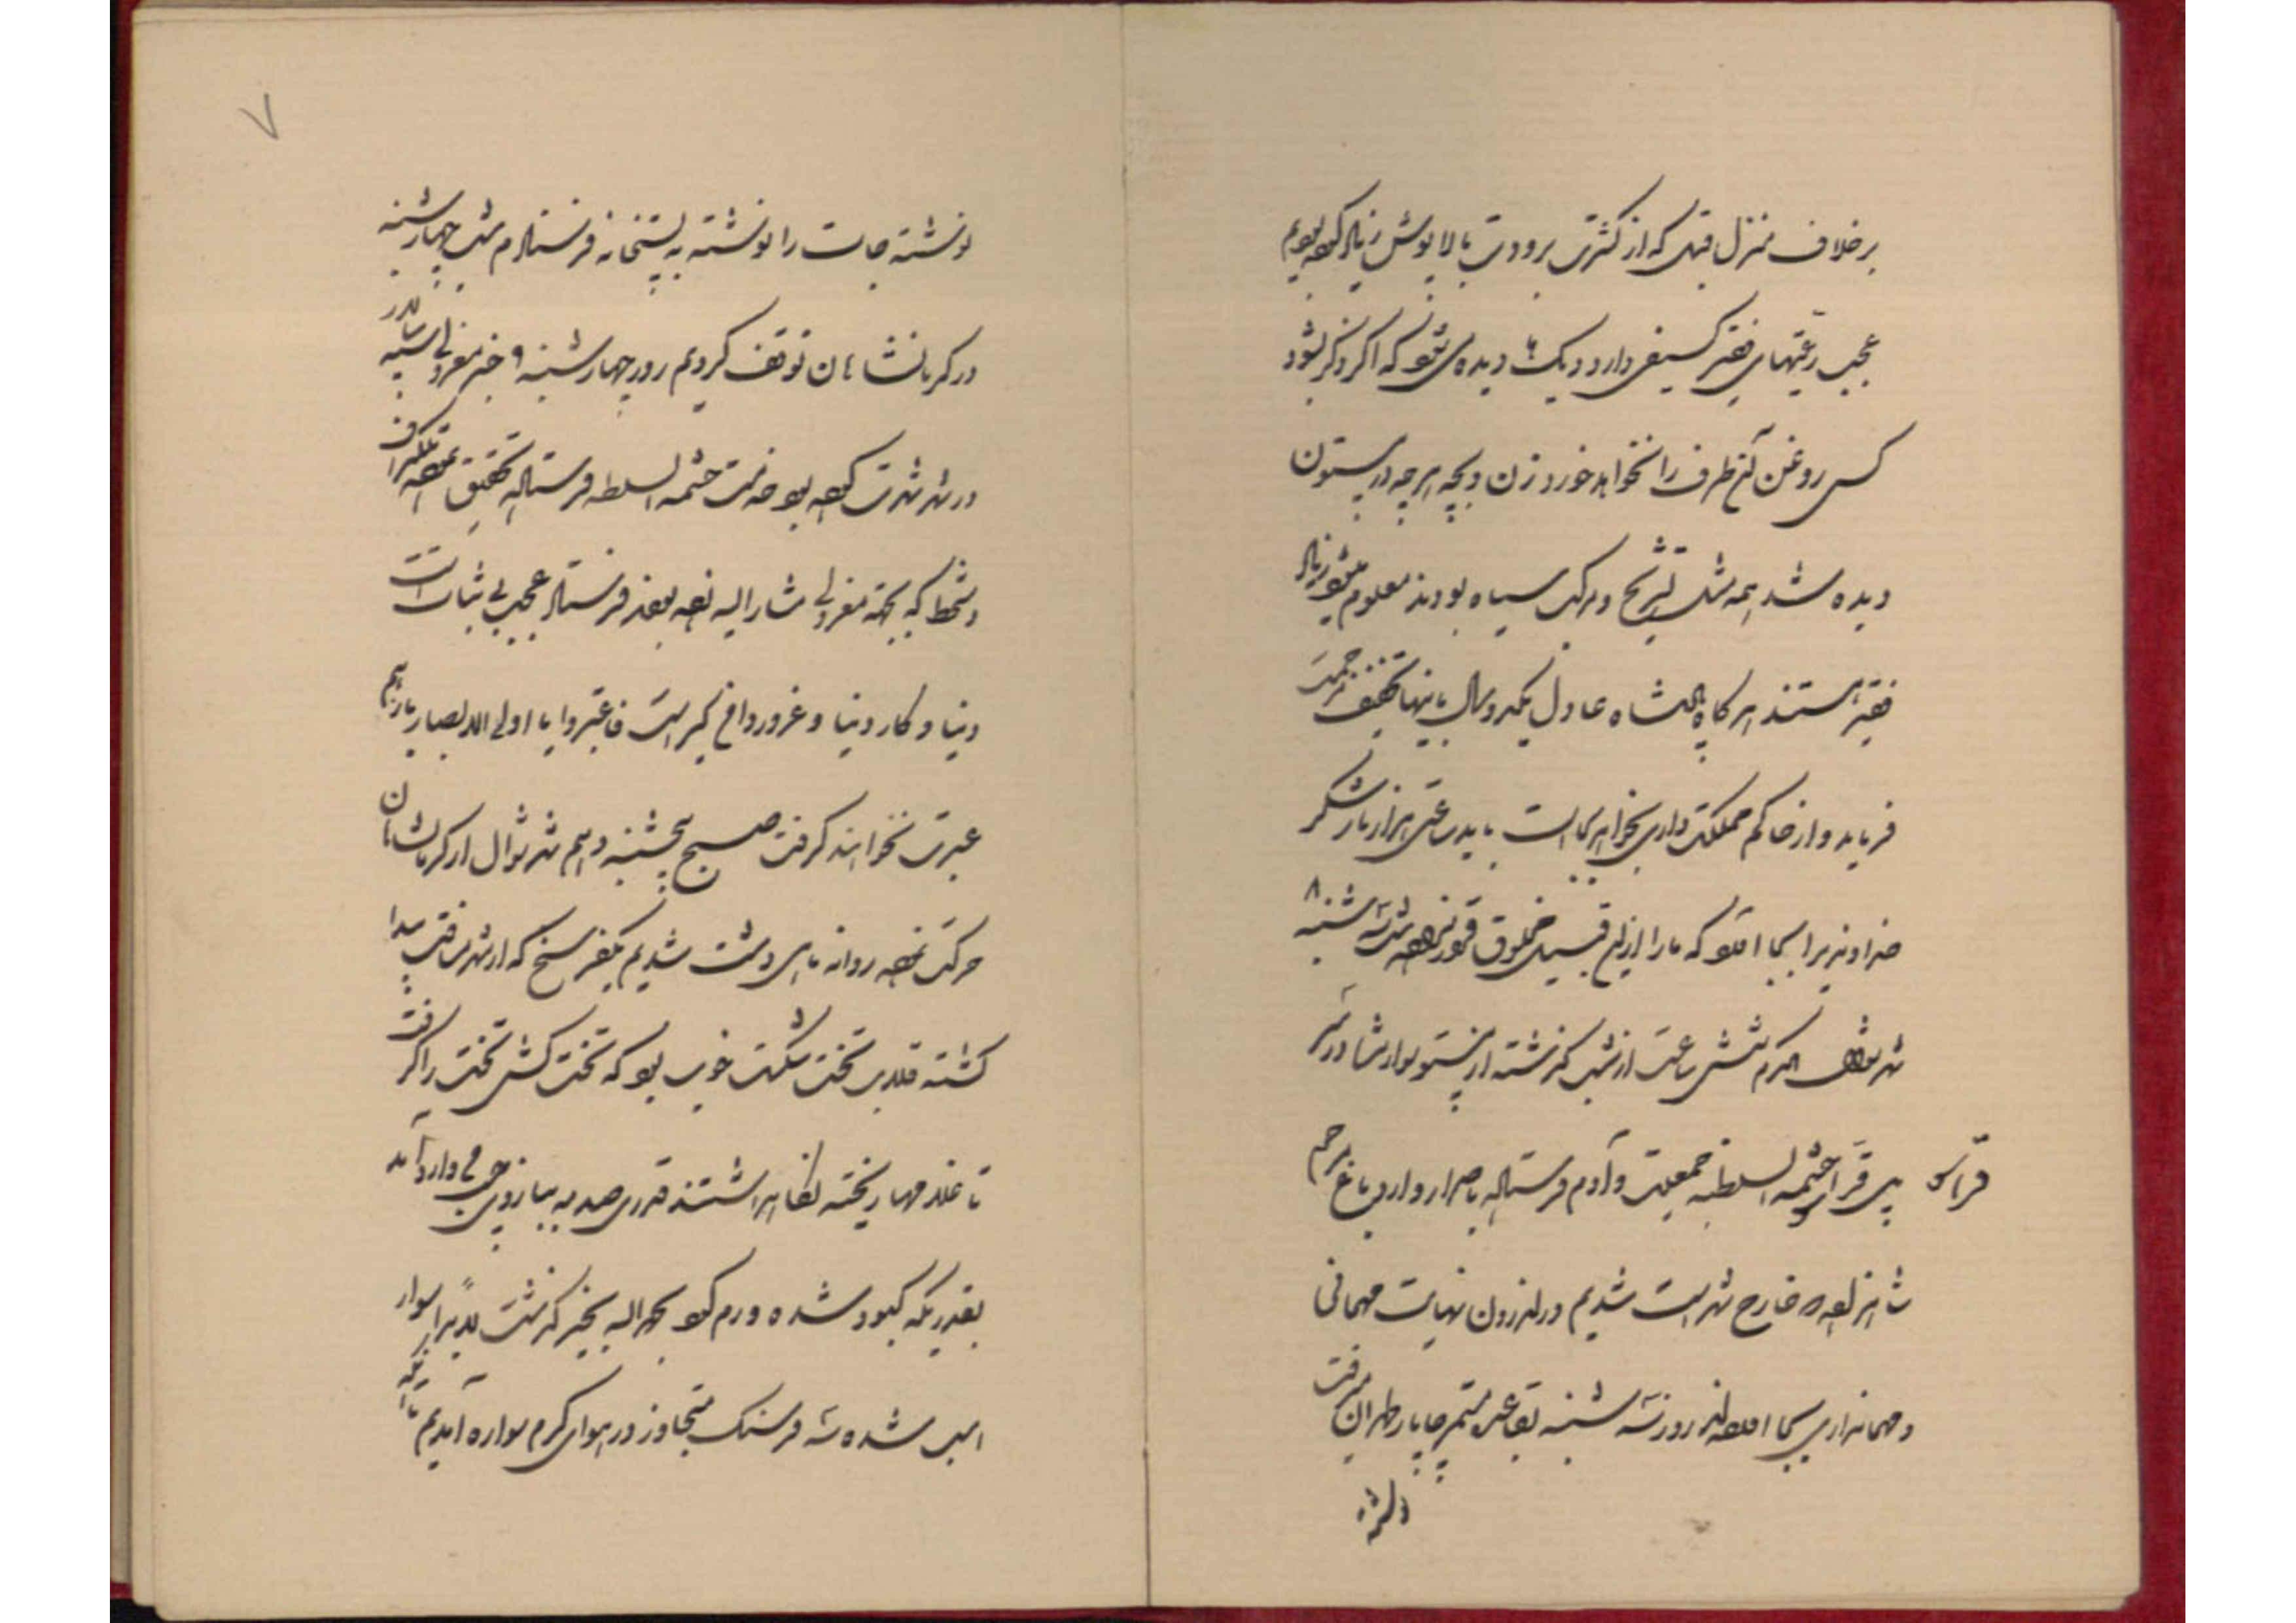 برخلاف منزل قبل که از کثرت برودت بالاپوش زیاد کرده بودیم
عجب رعیتهای فقیر کثیفی دارد دیک ها دیده می شود که اگر ذکر بشود
کسی روغن آن طرف را نخواهد خورد زن و بچه هر چه در بیستون
دیده شد همه مثل برنج و مرکب سیاه بودند معلوم میشود زیاد
فقیر هستند هرگاه پادشاه عادل یکدو سال باینها تخفیف مرحمت
فرماید و از حاکم مملکت داری بخواهد بجا است باید ساعتی هزار بار شکر
خداوند را بجا آورد که ما را از این قبیل مخلوق قرار نداده شب سه شنبه ۸
شهر شوال المکرم شش ساعت از شب گذشته از بیستون سوار شده در سر
پل قراسو حشمة السلطنه جمعیت و آدم فرستاده باصرار وارد باغ مرحوم
قراسو
شاهزاده که خارج شهر است شدیم در اندرون نهایت مهمانی
و مهماننوازی بجا آوردند روز سه شنبه توقف چاپار طهران میرفت
نوشته
۷
نوشته جات را نوشته به پستخانه فرستادم شب چهارشنبه
در کرمانشاهان توقف کردیم روز چهارشنبه ۹ خبر معزولی سپهسالار
در شهر شهرت کرده بود خدمت حشمة السلطنه فرستاده تحقیق نموده تلگراف
دستخط که بجهة معزولی مشارالیه نموده بودند فرستاد عجب بی ثبات است
دنیا و کار دنیا و غرور واقع گیر است فاعتبروا یا اولی الابصار باز هم
عبرت نخواهند گرفت صبح پنجشنبه دهم شهر شوال از کرمانشاهان
حرکت نموده روانه ماهی دشت شدیم یکفرسخ که از شهر مسافت پیدا
گشته قلاب تخت شکست خوب بود که تخت کش تخت را گرفت
تا غلامها ریخته نگاه داشتند قدری صدمه ببازوی وارد آمد
بقدریکه کبود شده ورم کرد بحمدالله بخیر گذشت لابداً سوار
اسب شده سه فرسنگ متجاوز در هوای گرم سواره آمدیم تا